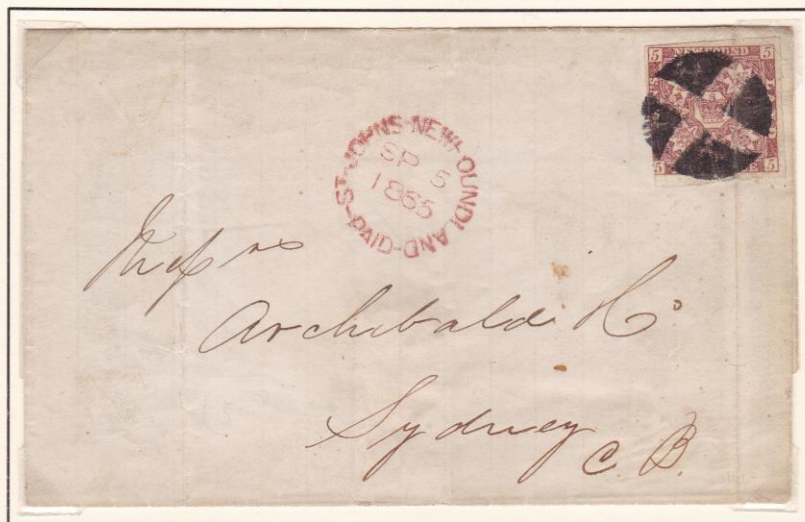 5 NEWFOUND 5
5 5
ST. JOHNS NEWFOUNDLAND
SP 5
1865
PAID
Messrs
Archibald & Co
Sydney
C. B.